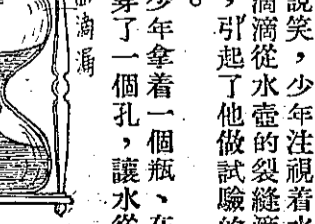 說笑，少年注視着水
滴滴從水壺的裂縫滴
，引起了他做試驗的
少年拿着一個瓶、在
穿了一個孔，讓水從
滴漏